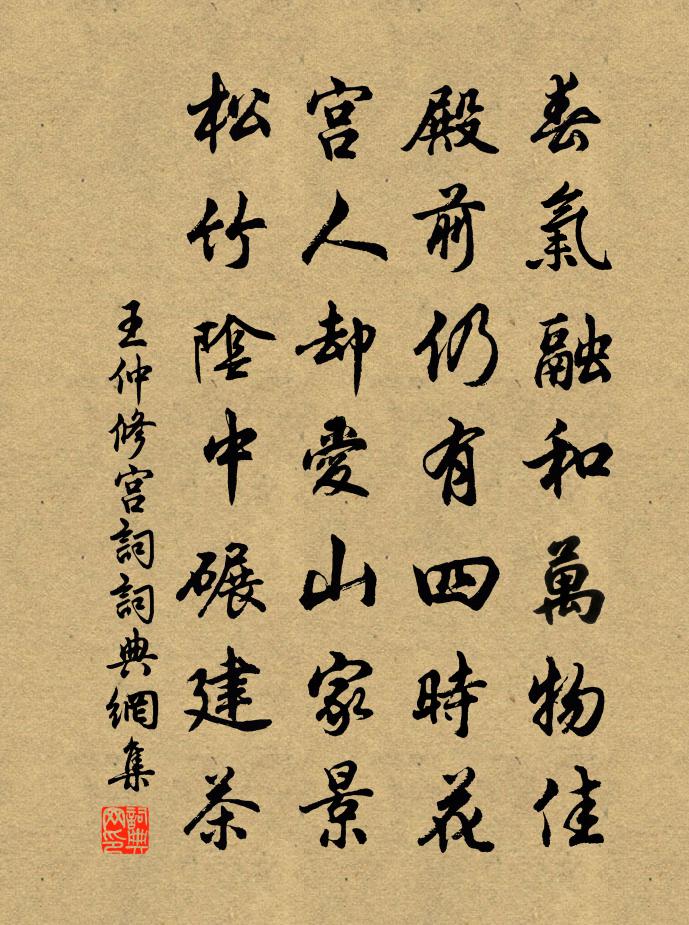 春氣融和萬物佳
殿前仍有四時花
宮人却愛山家景
松竹陰中碾建茶
王仲修宮詞詞典網集
詞典網印